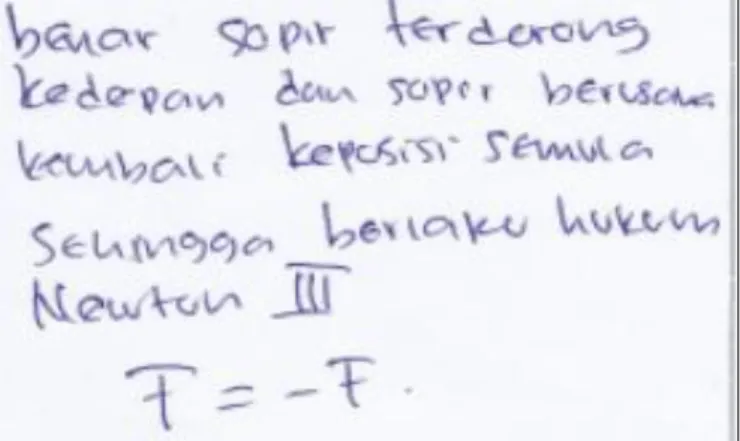 benar sopir terdorong
kedepan dan sopir berusaha
kembali keposisi semula
Sehingga berlaku hukum
Newton III
F = - F.